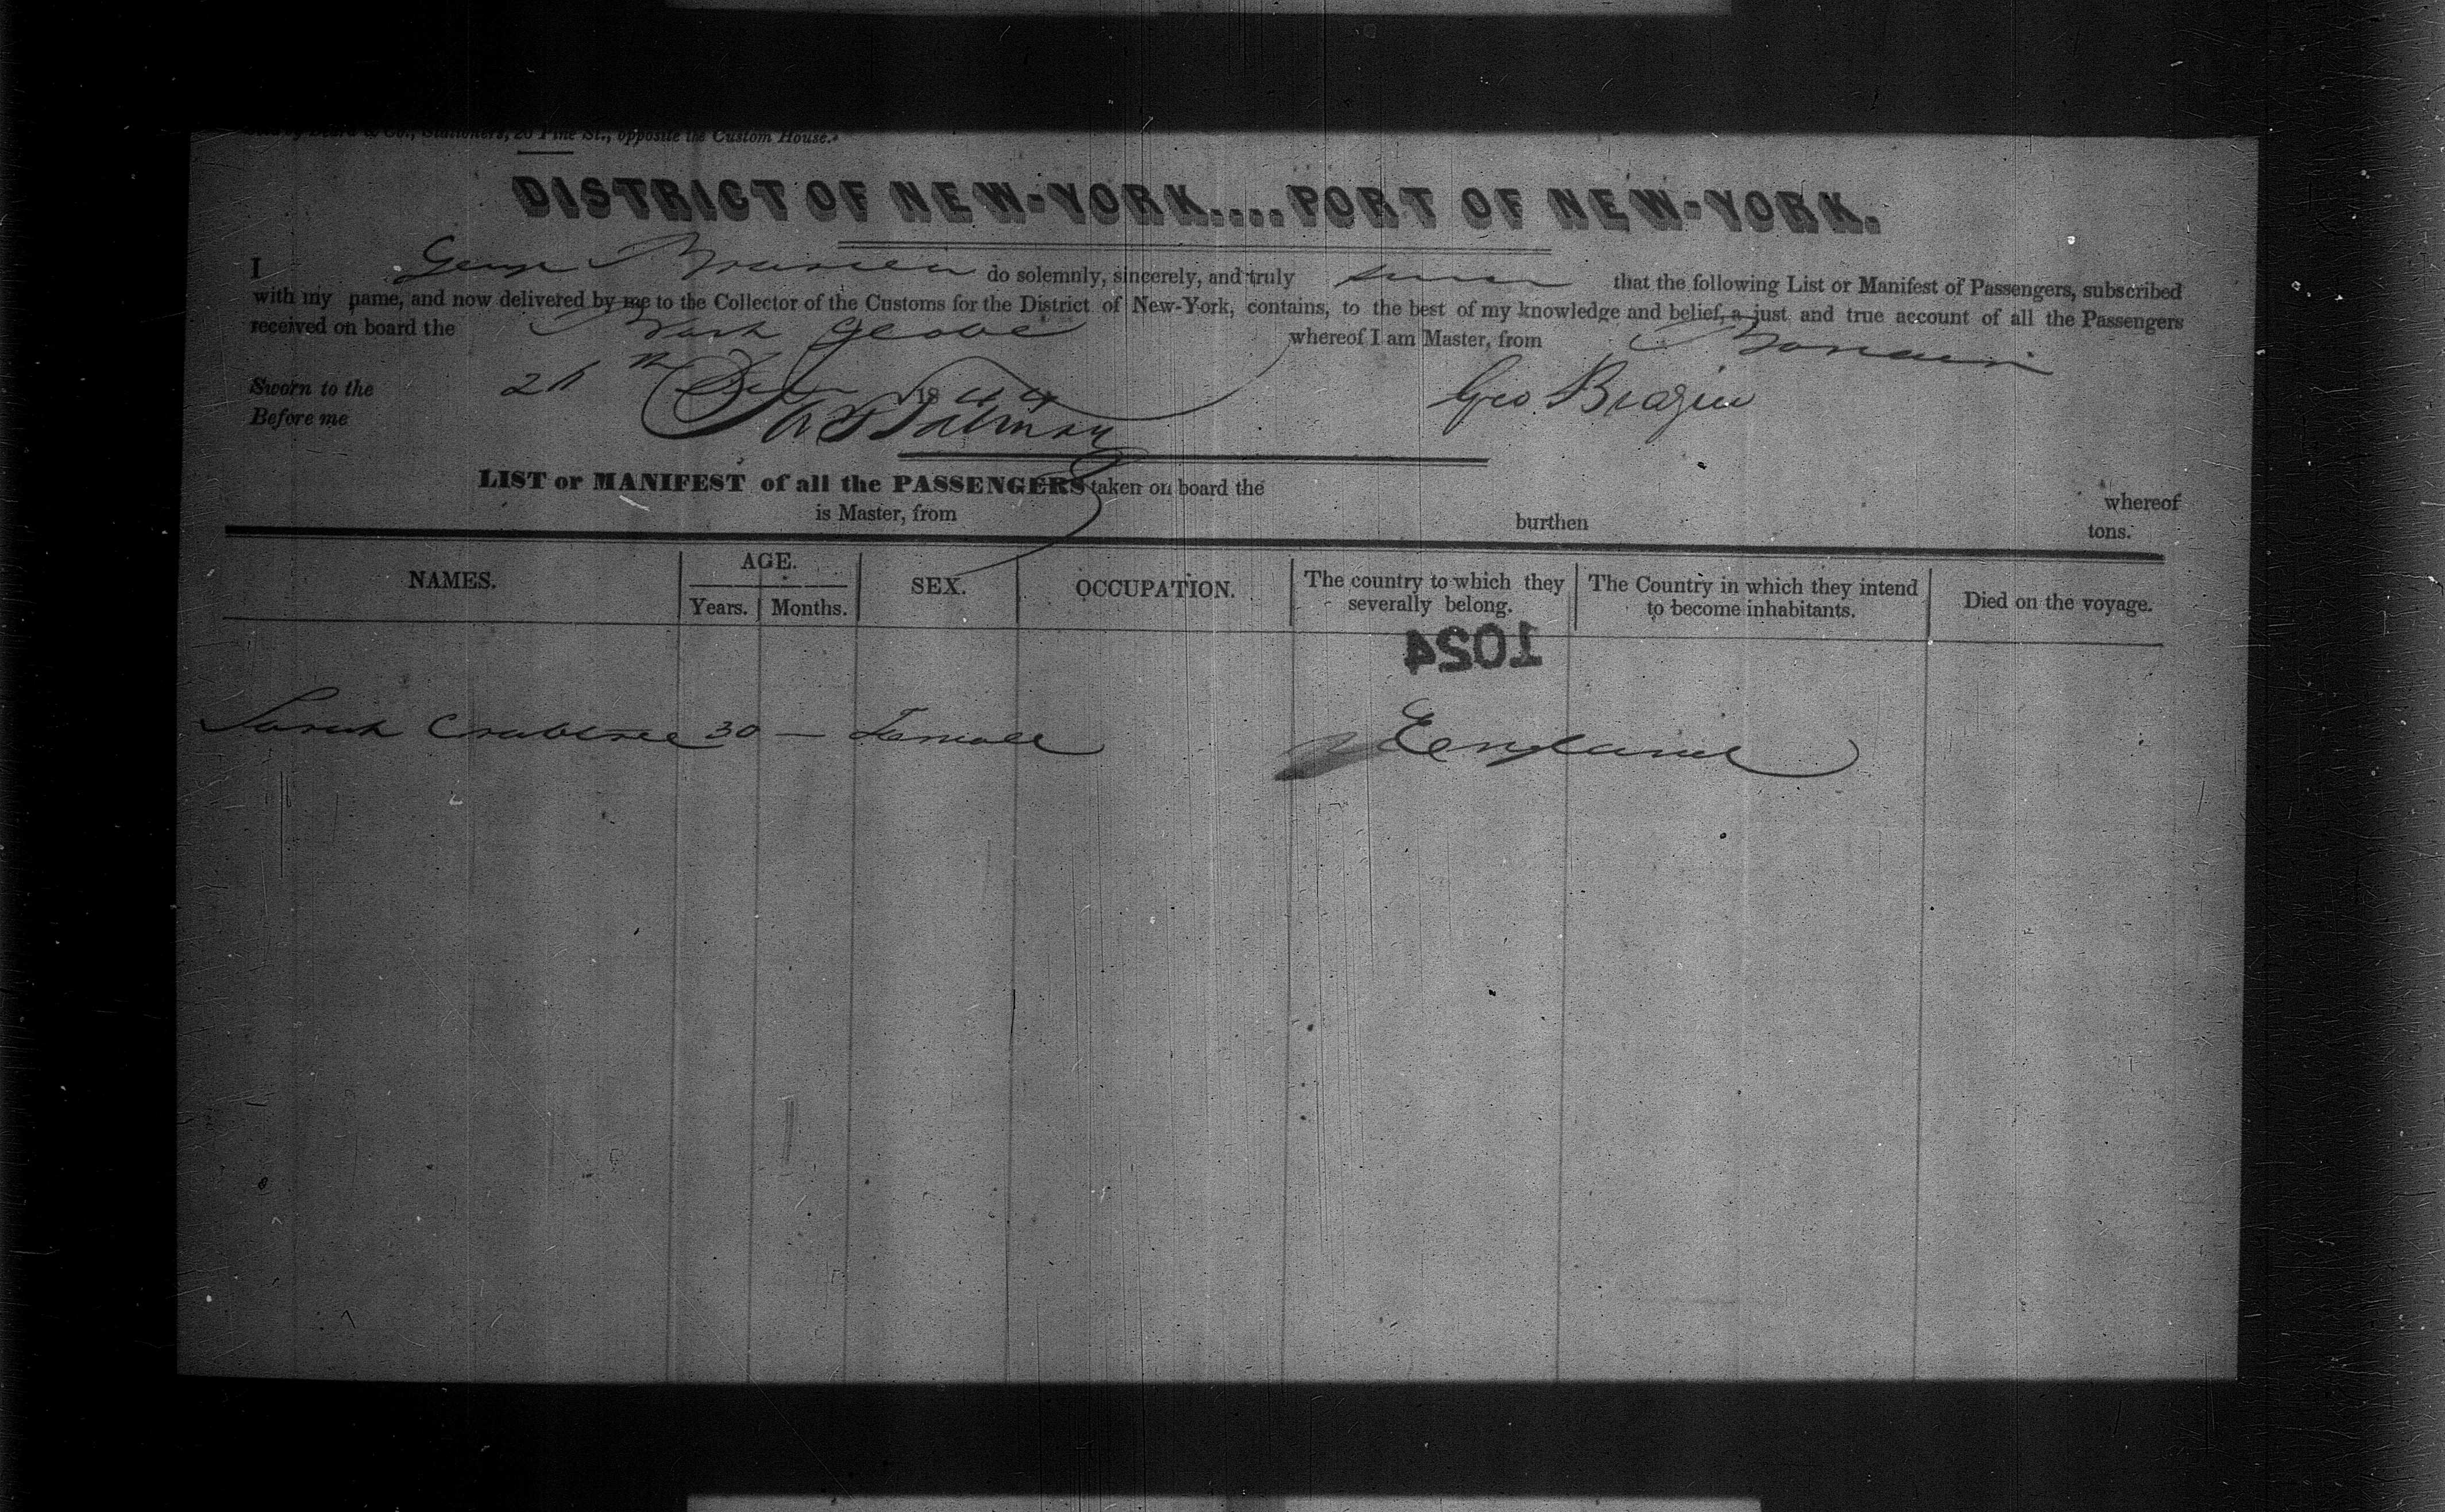 Stationers, 28 Pine St., opposite the Custom House.
DISTRICT OF NEW-YORK....PORT OF NEW-YORK.
I George do solemnly, sincerely, and truly that the following List or Manifest of Passengers, subscribed
with my name, and now delivered by me to the Collector of the Customs for the District of New-York, contains, to the best of my knowledge and belief, a just and true account of all the Passengers
received on board the Globe whereof I am Master, from
Sworn to the 18 44 Geo
Before me
LIST or MANIFEST of all the PASSENGERS taken on board the whereof
is Master, from burthen tons.
NAMES. AGE. SEX. OCCUPATION. The country to which they severally belong. The Country in which they intend to become inhabitants. Died on the voyage.
Years. Months.
1024
Sarah Crabtree 30 — Female England